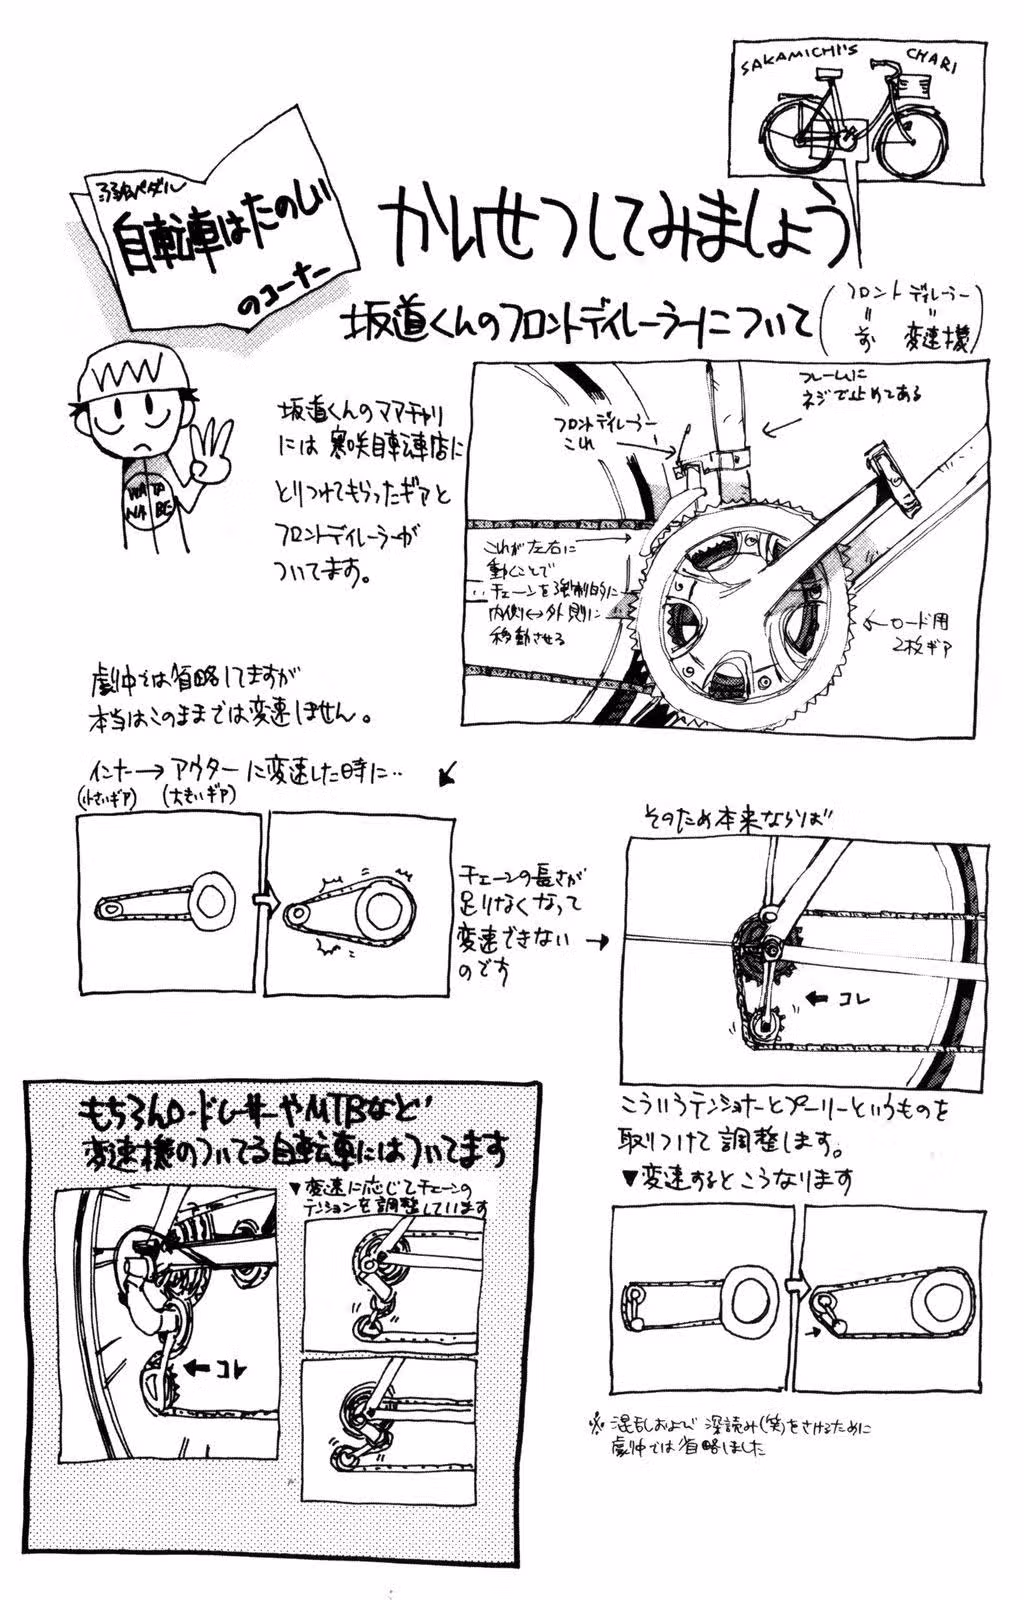 SAKAMICHI'S CHARI
弱虫ペダル
自転車はたのしい
のコーナー
かいせつしてみましょう
坂道くんのフロントディレーラーについて
(フロント ディレーラー
〃 〃
前 変速機)
WATA
NABE
坂道くんのママチャリ
には寒咲自転車店に
とりつけてもらったギアと
フロントディレーラーが
ついてます。
フレームに
ネジで止めてある
フロントディレーラー
これ
これが左右に
動くことで
チェーンを強制的に
内側↔外側に
移動させる
←ロード用
2枚ギア
劇中では省略してますが
本当はこのままでは変速しません。
インナー→アウターに変速した時に‥
(小さいギア) (大きいギア)
チェーンの長さが
足りなくなって
変速できない
のです
そのため本来ならば
←コレ
こういうテンショナーとプーリーというものを
取りつけて調整します。
▼変速するとこうなります
※混乱および深読み(笑)をさけるために
劇中では省略しました
もちろんロードレーサーやMTBなど
変速機のついてる自転車にはついてます
▼変速に応じてチェーンの
テンションを調整しています
←コレ